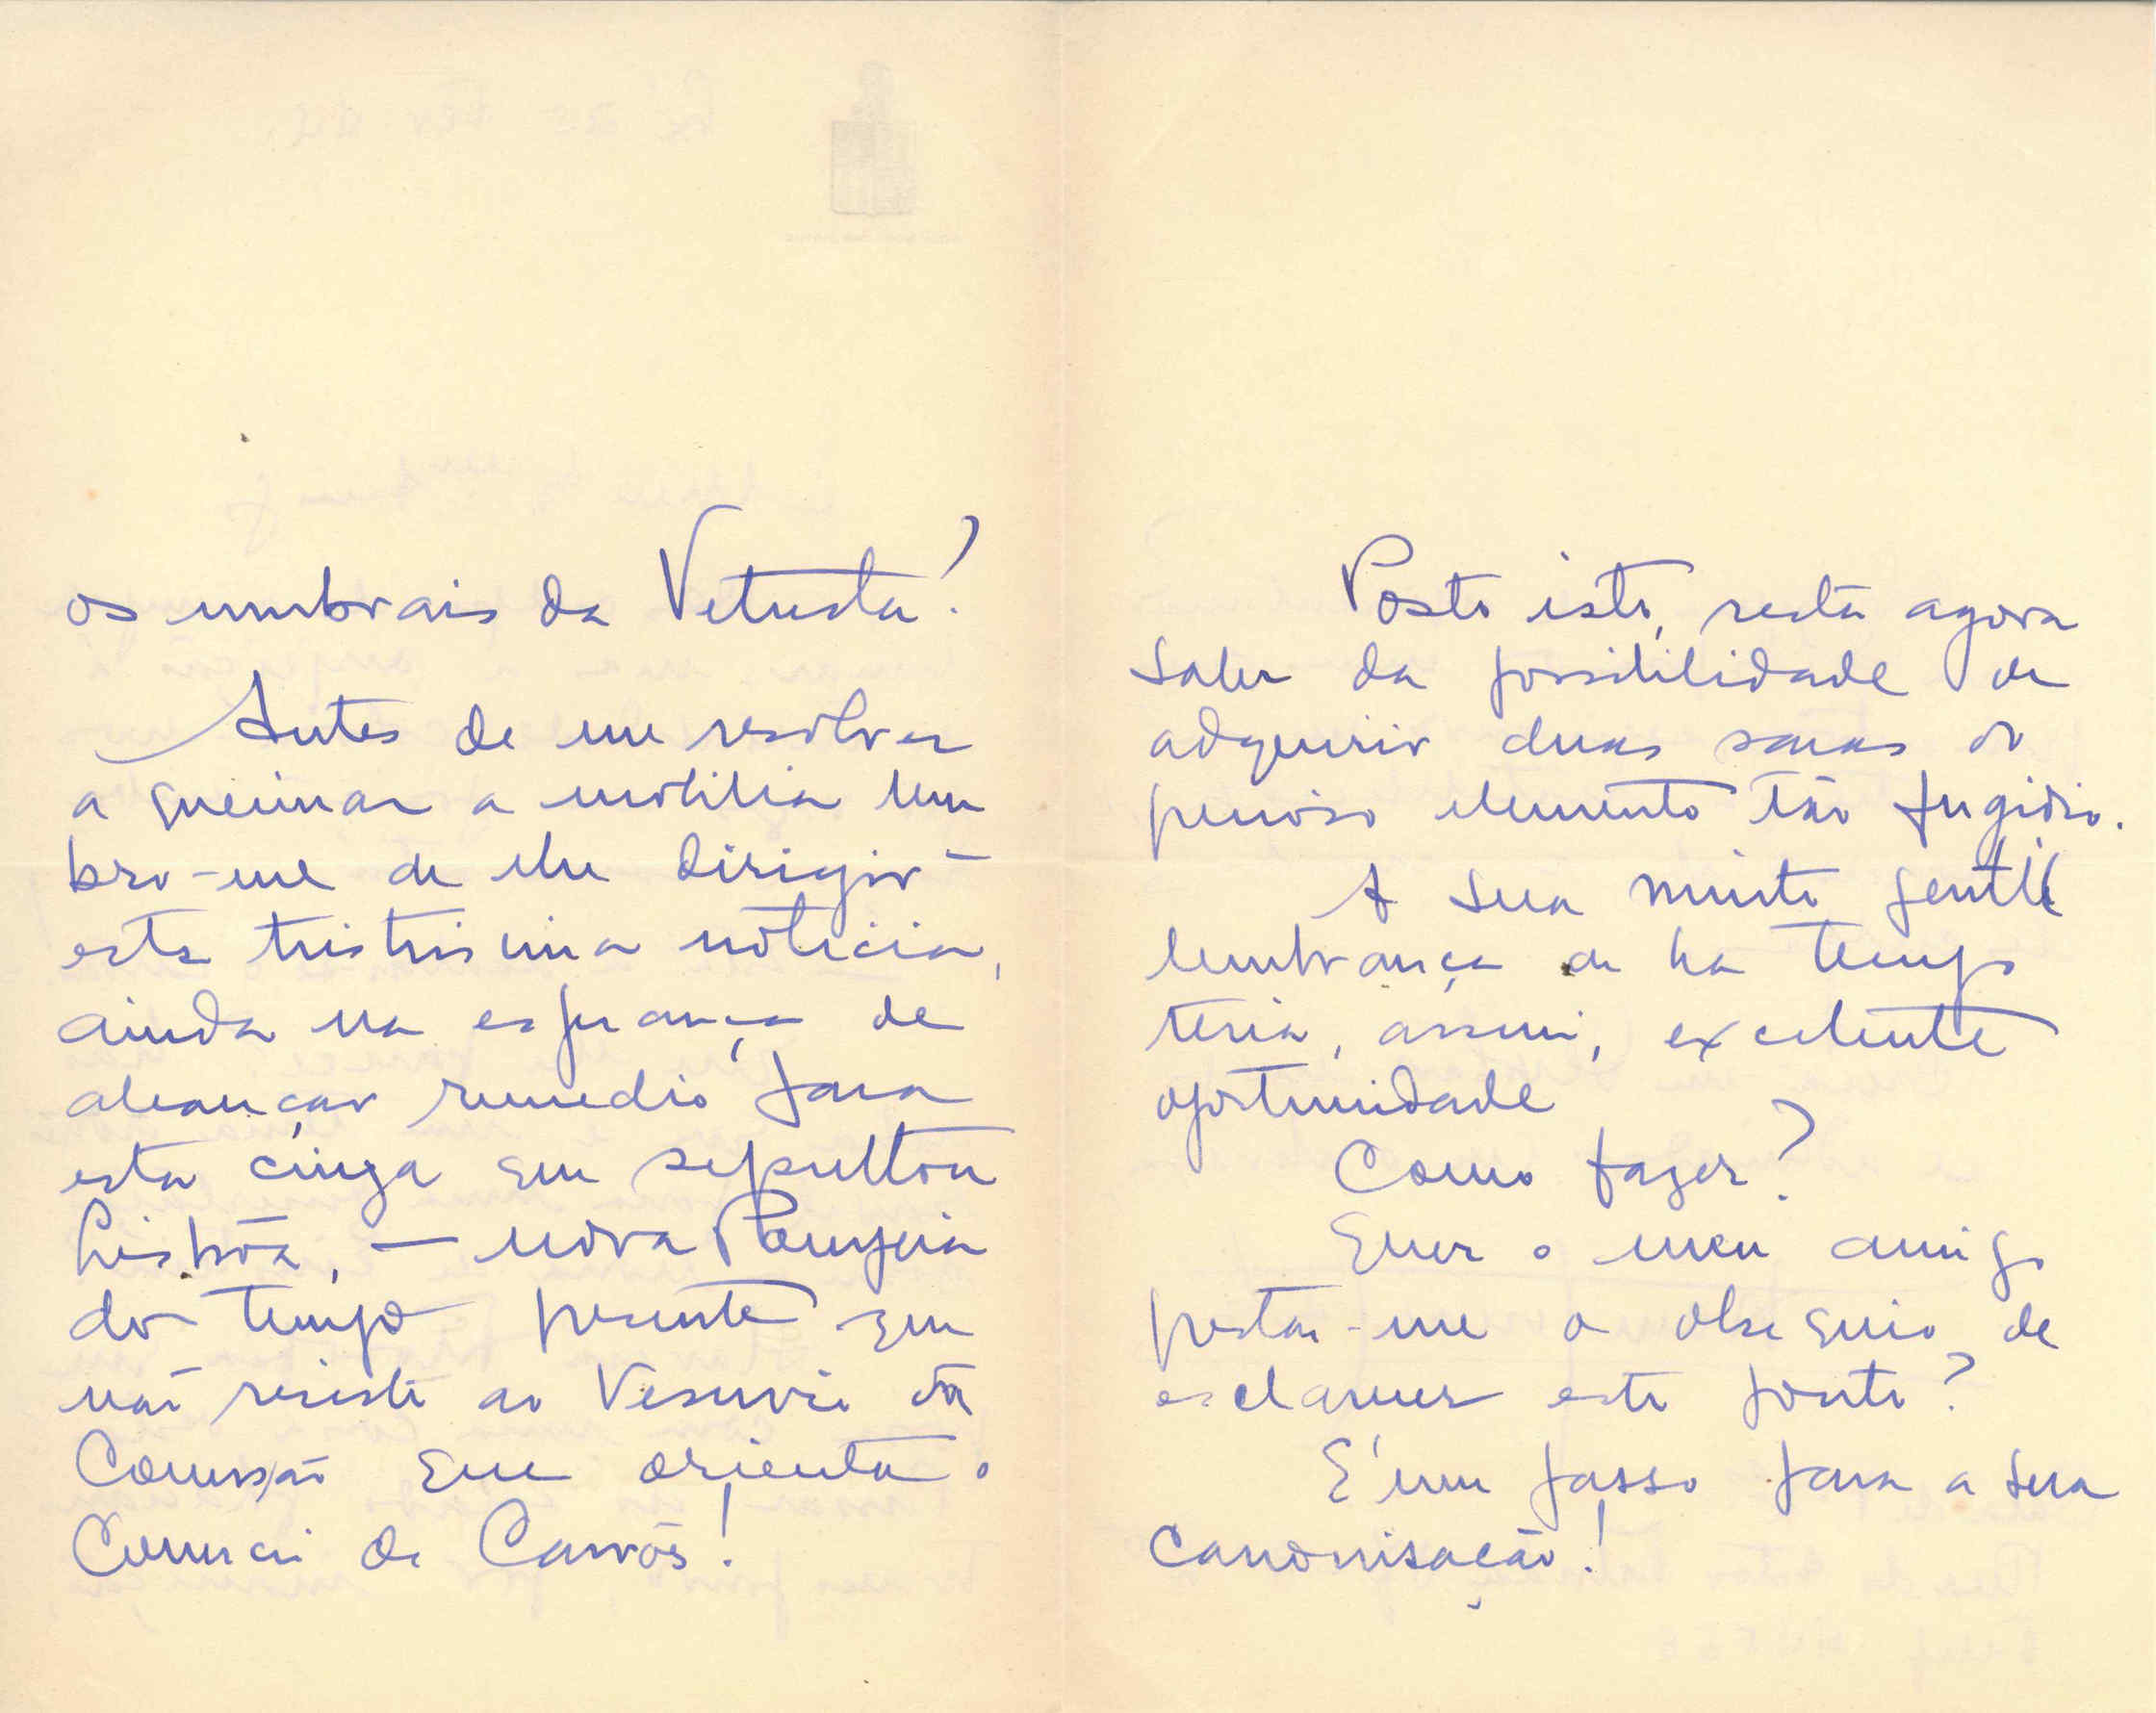 os umbrais da Vetusta?
Antes de me resolver
a queimar a mobilia lem
bro-me de lhe dirigir
esta tristissima noticia,
ainda na esperança de
alcançar remedio para
esta cinza que sepultou
Lisbôa, — nova Pompeia
do tempo presente que
não resiste ao Vesuvio da
Comissão que orienta o
Comercio de Carvões!
Posto isto, resta agora
saber da possibilidade de
adquirir duas sacas do
precioso elemento tão fugidio.
A sua muito gentil
lembrança de ha tempo
teria, assim, excelente
oportunidade
Como fazer?
Quer o meu amigo
prestar-me o obsequio de
esclarecer este ponto?
E' um passo para a sua
canonisação!